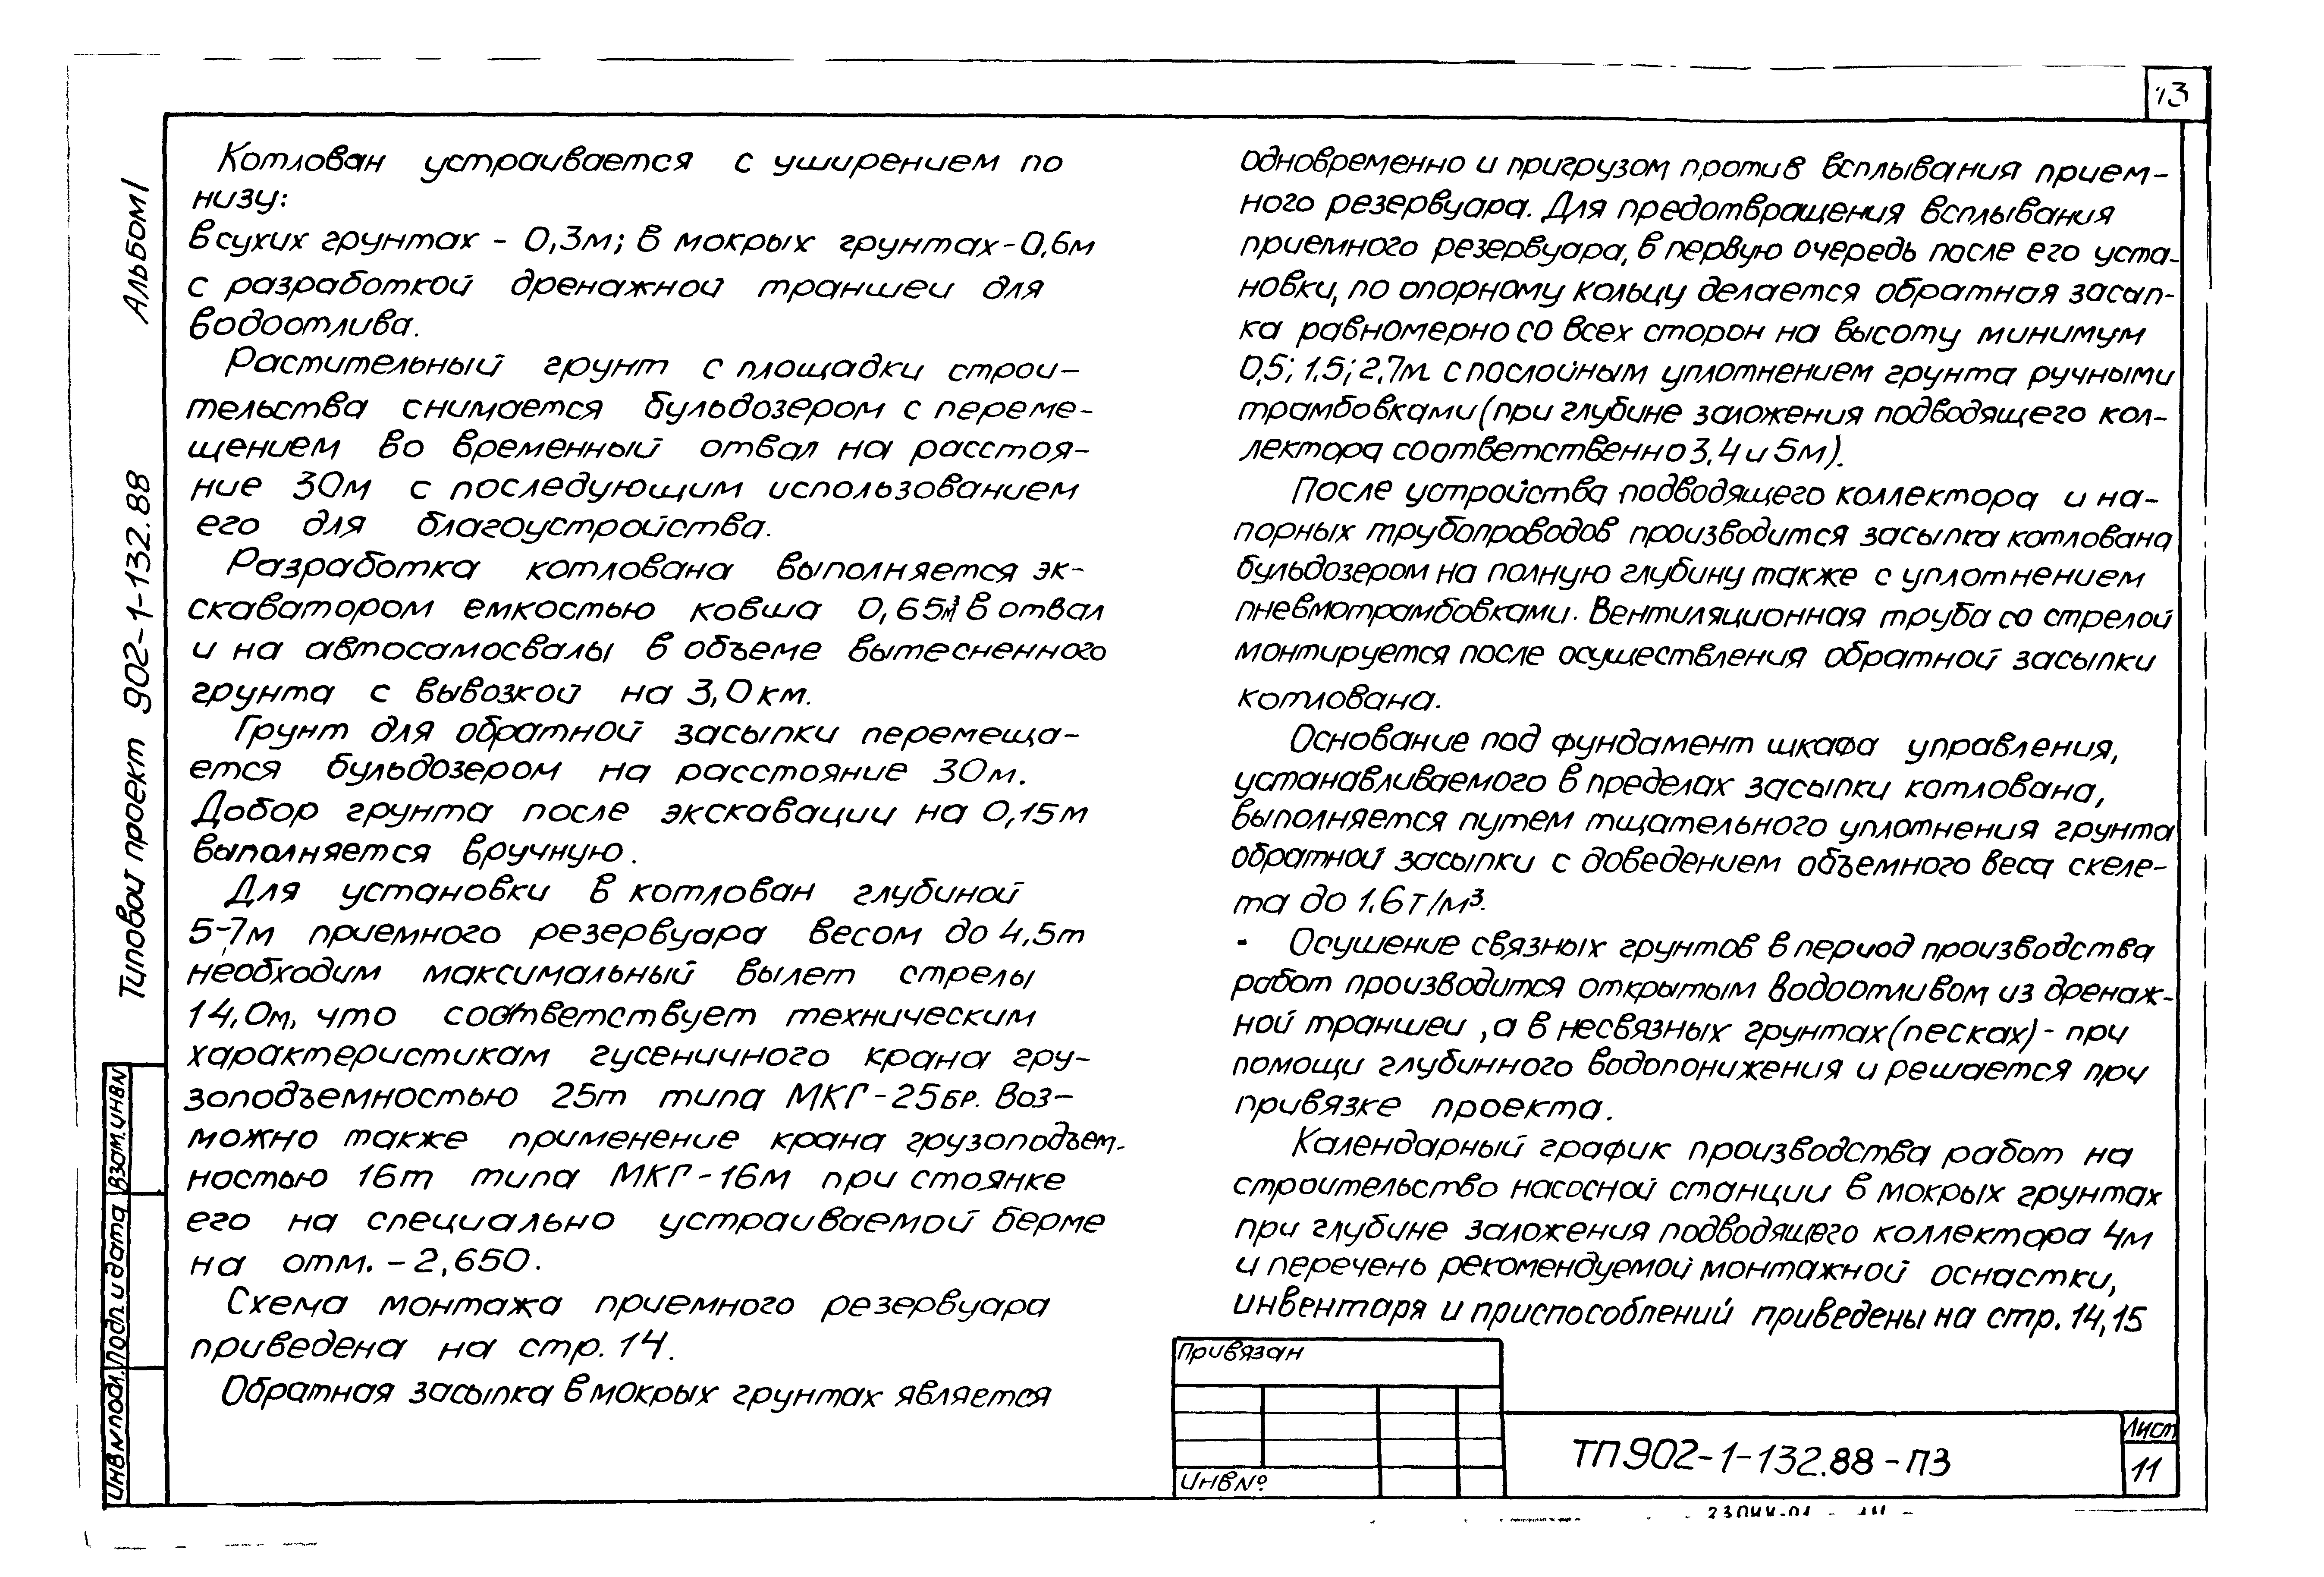 13
Альбом I
Типовой проект 902-1-132.88
Котлован устраивается с уширением по
низу:
в сухих грунтах - 0,3м; в мокрых грунтах - 0,6м
с разработкой дренажной траншеи для
водоотлива.
Растительный грунт с площадки строи-
тельства снимается бульдозером с переме-
щением во временный отвал на расстоя-
ние 30м с последующим использованием
его для благоустройства.
Разработка котлована выполняется эк-
скаватором емкостью ковша 0,65м³ в отвал
и на автосамосвалы в объеме вытесненного
грунта с вывозкой на 3,0 км.
Грунт для обратной засыпки перемеща-
ется бульдозером на расстояние 30м.
Добор грунта после экскавации на 0,15м
выполняется вручную.
Для установки в котлован глубиной
5-7м приемного резервуара весом до 4,5т
необходим максимальный вылет стрелы
14,0м, что соответствует техническим
характеристикам гусеничного крана гру-
зоподъемностью 25т типа МКГ-25БР. Воз-
можно также применение крана грузоподъем-
ностью 16т типа МКГ-16м при стоянке
его на специально устраиваемой берме
на отм. -2,650.
Схема монтажа приемного резервуара
приведена на стр. 14.
Обратная засыпка в мокрых грунтах является
одновременно и пригрузом против всплывания прием-
ного резервуара. Для предотвращения всплывания
приемного резервуара, в первую очередь после его уста-
новки, по опорному кольцу делается обратная засып-
ка равномерно со всех сторон на высоту минимум
0,5; 1,5; 2,7м с послойным уплотнением грунта ручными
трамбовками (при глубине заложения подводящего кол-
лектора соответственно 3,4 и 5м).
После устройства подводящего коллектора и на-
порных трубопроводов производится засыпка котлована
бульдозером на полную глубину также с уплотнением
пневмотрамбовками. Вентиляционная труба со стрелой
монтируется после осуществления обратной засыпки
котлована.
Основание под фундамент шкафа управления,
устанавливаемого в пределах засыпки котлована,
выполняется путем тщательного уплотнения грунта
обратной засыпки с доведением объемного веса скеле-
та до 1.6 т/м³.
- Осушение связных грунтов в период производства
работ производится открытым водоотливом из дренаж-
ной траншеи, а в несвязных грунтах (песках) - при
помощи глубинного водопонижения и решается при
привязке проекта.
Календарный график производства работ на
строительство насосной станции в мокрых грунтах
при глубине заложения подводящего коллектора 4м
и перечень рекомендуемой монтажной оснастки,
инвентаря и приспособлений приведены на стр. 14, 15
Привязан
Инв №
ТП 902-1-132.88-ПЗ
Лист
11
Взам.инвN
Подп. и дата
Инв N подл.